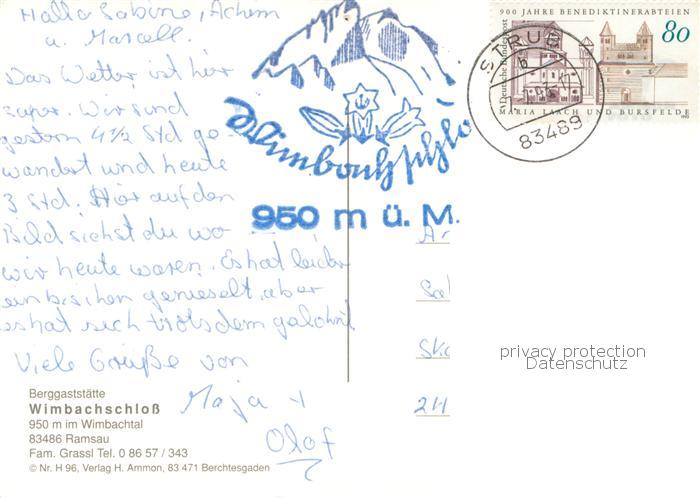 Hallo Sabine, Achim
u. Marcell.
Das Wetter ist hier
super. Wir sind
gestern 4 1/2 Std ge-
wandert und heute
3 Std. Hier auf den
Bild siehst du wo
wir heute waren. Es hat leider
ein bischen genieselt, aber
es hat sich trotsdem gelohnt
Viele Grüße von
Maja +
Olaf
Berggaststätte
Wimbachschloß
950 m im Wimbachtal
83486 Ramsau
Fam. Grassl Tel. 0 86 57 / 343
© Nr. H 96, Verlag H. Ammon, 83 471 Berchtesgaden
Wimbachschlo
950 m ü. M.
900 JAHRE BENEDIKTINERABTEIEN
80
Deutsche Bundespost
MARIA LAACH UND BURSFELDE
STRUB
b
83489
privacy protection
Datenschutz